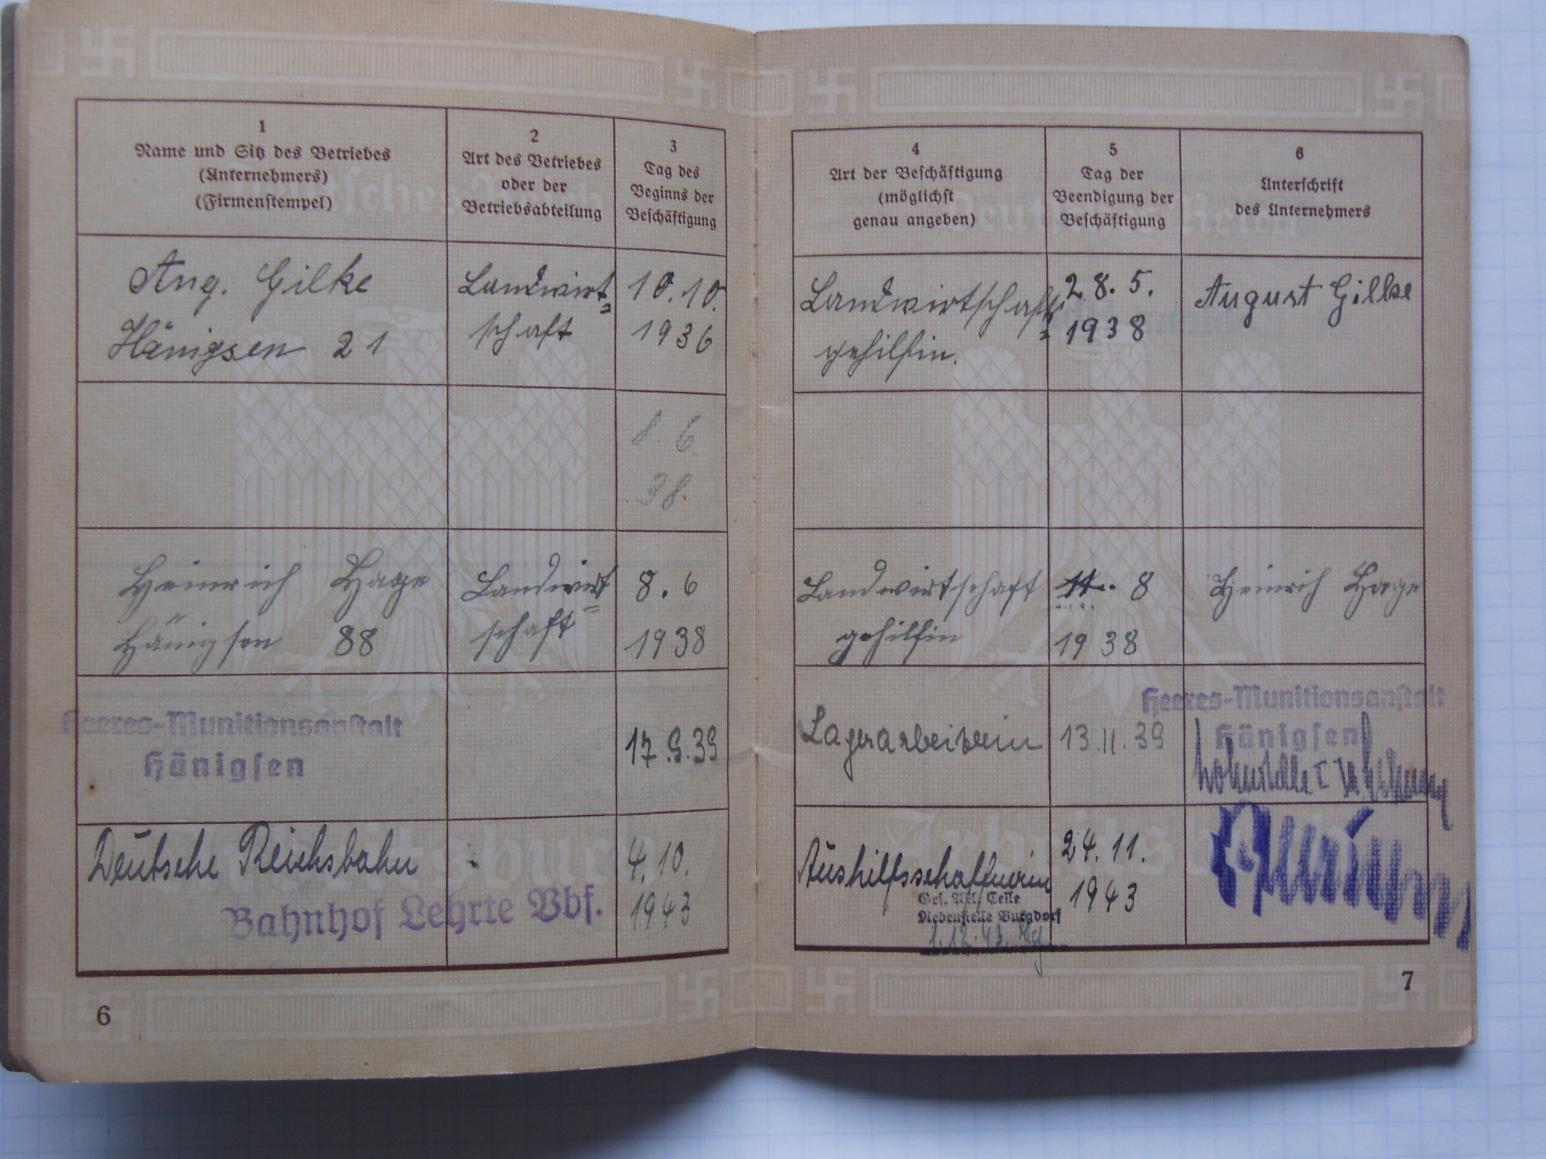 1
Name und Sitz des Betriebes
(Unternehmers)
(Firmenstempel)
2
Art des Betriebes
oder der
Betriebsabteilung
3
Tag des
Beginns der
Beschäftigung
Aug. Gilke
Hänigsen 21
Landwirt=
schaft
10.10.
1936
8. 6
38.
Heinrich Hage
Hänigsen 88
Landwirt=
schaft
8. 6
1938
Heeres-Munitionsanstalt
Hänigsen
17.9.39
Deutsche Reichsbahn
Bahnhof Lehrte Vbf.
4.10.
1943
6
4
Art der Beschäftigung
(möglichst
genau angeben)
5
Tag der
Beendigung der
Beschäftigung
6
Unterschrift
des Unternehmers
Landwirtschafts=
gehilfin.
28.5.
1938
August Gilke
Landwirtschaft
gehilfin
8
1938
Heinrich Hage
Lagerarbeiterin
13.11.39
Heeres-Munitionsanstalt
Hänigsen
Aushilfsschaffnerin
24.11.
1943
Celle
Nebenstelle Burgdorf
1.12.43.
7
Deutsches Reich
Arbeitsbuch